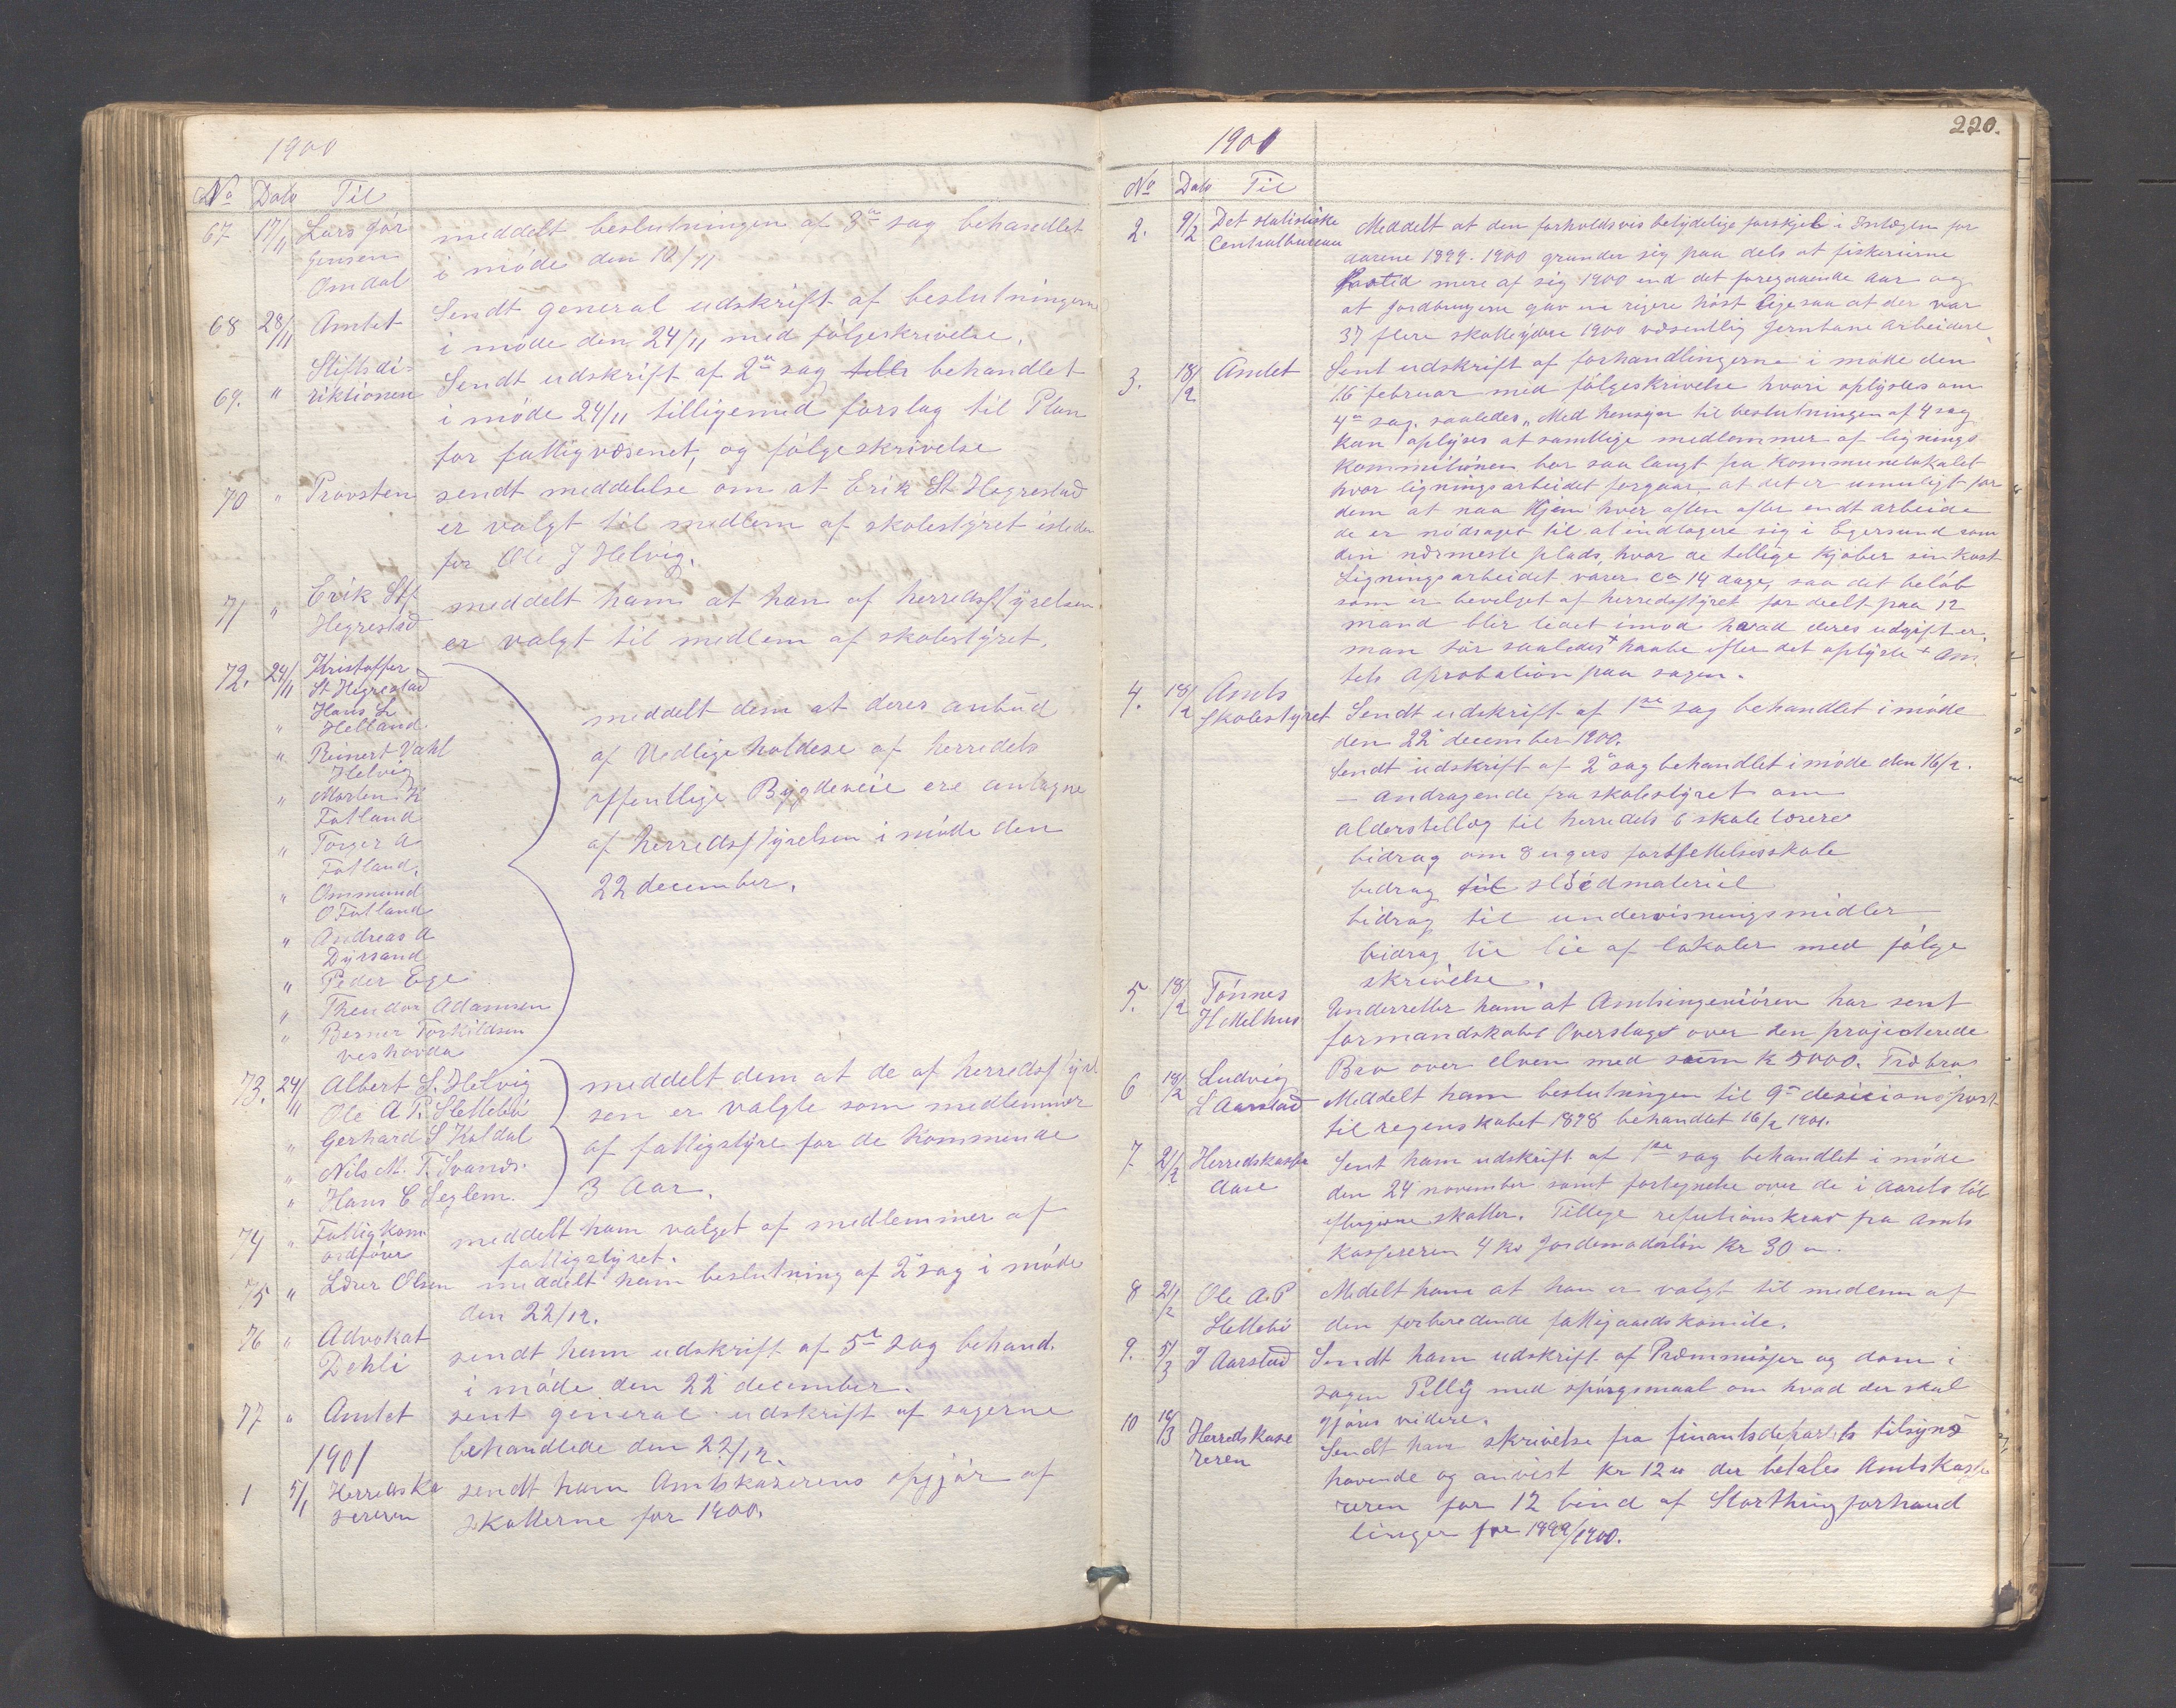 1900
No Dato Til
67 17/11 Lars Jör meddelt beslutningen af 3die sag behandlet
gensen i möde den 10/11
Omdal
68 28/11 Amtet Sendt general udskrift af beslutningerne
i möde den 24/11 med fölgeskrivelse.
69. " Stiftsdi- Sendt udskrift af 2den sag behandlet
riktionen i möde 24/11 tilligemed forslag til Plan
for fattigvæsenet, og fölgeskrivelse
70 " Provsten sendt meddelelse om at Erik St Hegrestad
er valgt til medlem af skolestyret isteden
for Ole J Helvig.
71 " Erik St meddelt ham at han af herredsstyrelsen
Hegrestad er valgt til medlem af skolestyret.
72. 24/11 Kristoffer
St Hegrestad
" Hans L
Helland
" Reinert Vahl
Helvig
" Morten K
Fotland
" Torger A
Fotland.
" Ommund
O Fotland
" Andreas A
Dyrsand
" Peder Ege
" Theodor Adamsen
" Berner Torkildsen
veshovda
meddelt dem at deres anbud
af Vedligeholdese af herredets
offentlige Bygdeveie ere antagne
af herredsstyrelsen i möde den
22 december.
73. 24/11 Albert L. Helvig
" Ole A P. Slettebö
" Gerhard S Koldal
" Nils M. T. Svanes.
" Hans C Seglem.
meddelt dem at de af herredsstyrel
sen er valgte som medlemmer
af fattigstyre for de Kommende
3 Aar.
74 " Fattigkom. meddelt ham valget af medlemmer af
ordförer fattigstyret.
75 " Lærer Olsen meddelt ham beslutning af 2 sag i möde
den 22/12.
76 " Advokat sendt ham udskrift af 5te sag behand.
Dehli i möde den 22 december.
77 " Amtet sent general udskrift af sagerne
behandlede den 22/12.
1901
1 5/1 Herredska sendt ham Amtskaserens opgjör af
sereren skatterne for 1900.
220.
1901
No Dato Til
2. 9/2 Det statistiske Meddelt at den forholdsvis betydelige forskjel i Intægen for
Centralbureau aarene 1899. 1900 grunder sig paa dels at fiskerierne
mere af sig 1900 end det foregaaende Aar og
at Jordbrugere gav en rigere höst ligesaa at der var
37 flere skatteydere 1900 væsentlig Jernbane arbeidere
3. 18/2 Amdet Sent udskrift af forhandlingerne i möde den
16 februar med fölgeskrivelse hvori oplystes om
4de sag. saaledes, Med hensyn til beslutningen af 4 sag
kan oplyses at samtlige medlemmer af lignings
kommitionen bor saa langt fra kommunelokalet
hvor ligningsarbeidet forgaar, at det er umuligt for
dem at naa Hjem hver aften efter endt arbeide
de er nödsaget til at indlogere sig i Egersund som
den nærmeste plads, hvor de tellige kjöber sin kost
Ligningsarbeidet varer ca 14 dage, saa det belöb
som er bevilget af herredsstyret for deelt paa 12
mand blir lidet imod hvad deres udgift er,
man tör saaledes haabe efter det oplyste Am
tets Aprobation paa sagen.
4. 18/2 Amts Sendt udskrift af 1ste sag behandlet i möde
skolestyret den 22 december 1900.
Sendt udskrift af 2 sag behandlet i möde den 16/2.
— Andragende fra skolestyret om
alderstellæg til herredets 6 skolelærere
bidrag om 8 ugers fortsettelsesskole
bidrag til slöidmateriel
bidrag til undervisningsmidler
bidrag til lie af lokaler med fölge
skrivelse.
5. 18/2 Tönnes Underretter ham at Amtsingeniören har sent
H Melhus formandskabet Overslaget over den projecterede
Bro over elven med sum k 5000. Træbro
6 18/2 Ludvig Meddelt ham beslutningen til 9de desicionspost
L Aarstad til regenskabet 1898 behandlet 16/2 1901.
7 21/2 Herredskasser Sent ham udskrift af 1ste sag behandlet i möde
Aase den 24 november samt fortegnelse over de i Aarets löb
eftergivne skatter. Tillige refutionskrav fra Amts
kassereren 4 kv Jordemoderlön Kr 30 00.
8 21/2 Ole A. P Medelt ham at han er valgt til medlem af
Slettebö den forberedende fattigaardskomite.
9. 5/3 J Aarstad Sendt ham udskrift af Præmmisser og dom i
sagen Pelly med spörgsmaal om hvad der skal
gjöres videre.
10 14/3 Herredskase Sendt ham skrivelse fra finantsdepartets tilsyns
reren havende og anvist Kr 12 00 der betales Amtskasse
reren for 12 bind af Storthingforhand
linger for 1899/1900.